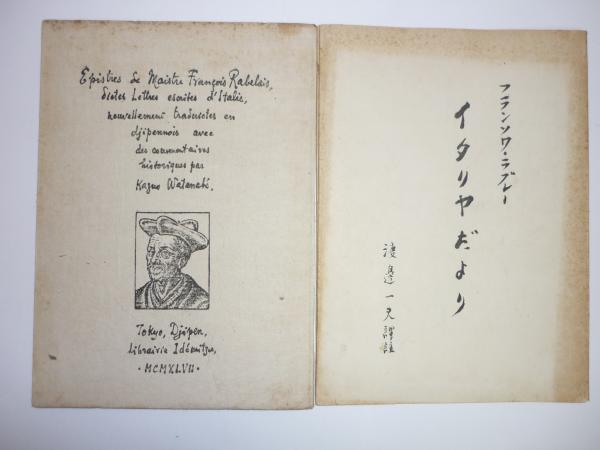 Epistres de Maistre François Rabelais,
dictes Lettres escrites d'Italie,
nouvellement traduictes en
djipennois avec
des commentaires
historiques par
Kazuo Watanabé.
Tokyo, Djipen,
Librairie Idémitsu,
·MCMXLVII·
フランソワ・ラブレー
イタリヤだより
渡邊一夫譯註